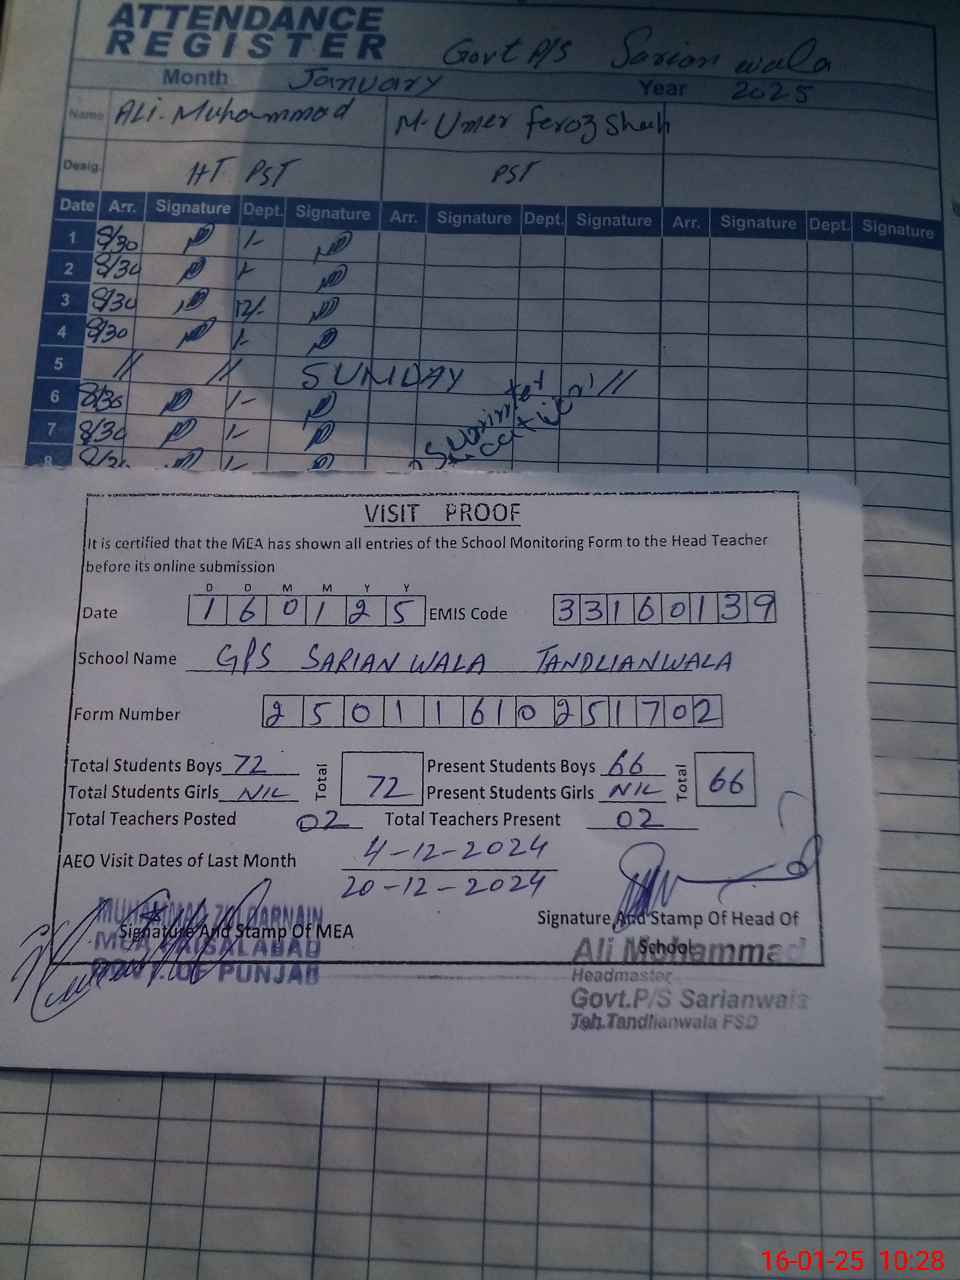 ATTENDANCE
REGISTER Govt P/S Sarian wala
Month January Year 2025
Name ALi. Muhammad M. Umer feroz Shah
Desig. HT PST PST
Date Arr. Signature Dept. Signature Arr. Signature Dept. Signature Arr. Signature Dept. Signature
1 8/30 1-
2 8/30 1-
3 8/30 12/-
4 8/30 1-
5 // // SUNDAY //
6 8/30 1-
7 8/30 1-
8 8/30 1-
VISIT PROOF
It is certified that the MEA has shown all entries of the School Monitoring Form to the Head Teacher
before its online submission
D D M M Y Y
Date 1 6 0 1 2 5 EMIS Code 3 3 1 6 0 1 3 9
School Name GPS SARIAN WALA TANDLIANWALA
Form Number 2 5 0 1 1 6 1 0 2 5 1 7 0 2
Total Students Boys 72 Total 72 Present Students Boys 66 Total 66
Total Students Girls NIL Present Students Girls NIL
Total Teachers Posted 02 Total Teachers Present 02
AEO Visit Dates of Last Month 4-12-2024
20-12-2024
MUHAMMAD ZULQARNAIN
Signature And Stamp Of MEA Signature And Stamp Of Head Of
School
MEA FAISALABAD
GOVT. OF PUNJAB
Ali Mohammad
Headmaster
Govt.P/S Sarianwala
Teh.Tandlianwala FSD
16-01-25 10:28